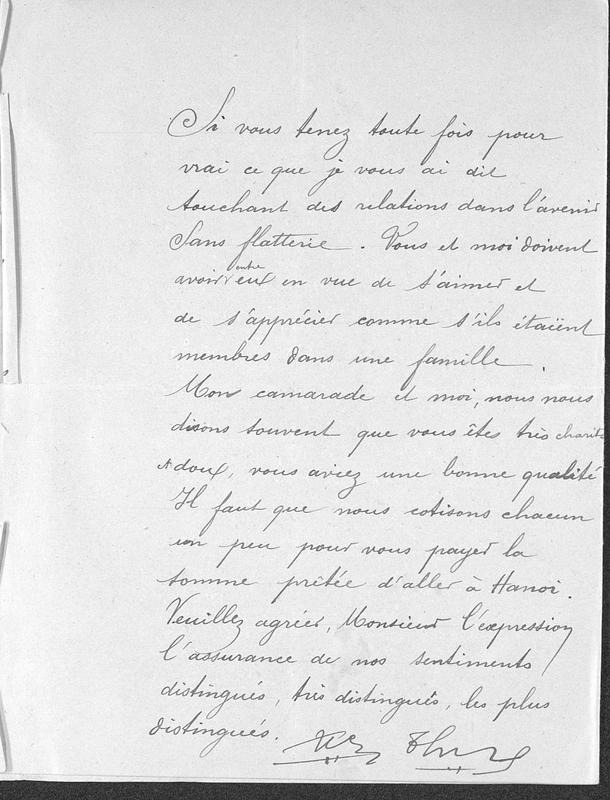 Si vous tenez toute fois pour
vrai ce que je vous ai dit
touchant des relations dans l'avenir
Sans flatterie. Vous et moi doivent
avoir entre eux en vue de s'aimer et
de s'apprécier comme s'ils étaient
membres dans une famille.
Mon camarade et moi, nous nous
disons souvent que vous êtes très charit
et doux, vous aviez une bonne qualité
Il faut que nous cotisons chacun
un peu pour vous payer la
somme prêtée d'aller à Hanoi.
Veuillez agréer, Monsieur l'expression
l'assurance de nos sentiments
distingués, très distingués, les plus
distingués.